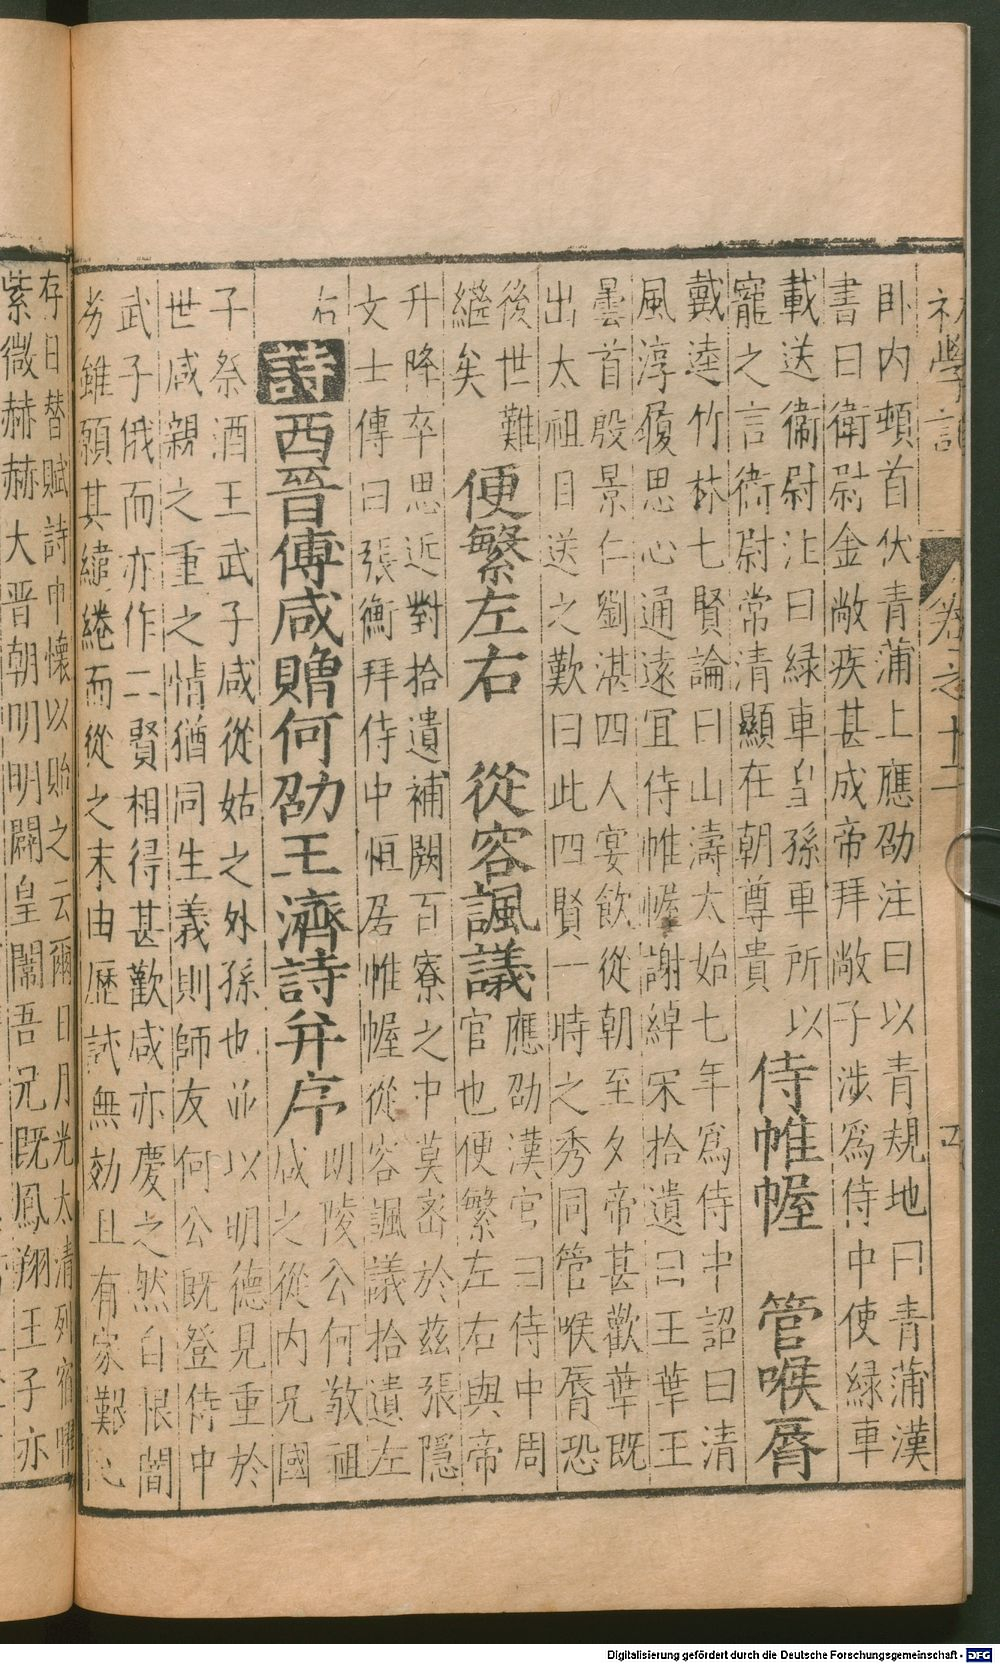 初學記
卷之十二
卧内頓首伏青蒲上應劭注曰以青規地曰青蒲漢
書曰衛尉金敞疾甚成帝拜敞子涉爲侍中使緑車
載送衞尉注曰緑車皇孫車所以
寵之言衛尉常清顯在朝尊貴
侍帷幄
管喉脣
戴逵竹林七賢論曰山濤太始七年爲侍中詔曰清
風淳履思心通遠宜侍帷幄謝綽宋拾遺曰王華王
曇首殷景仁劉湛四人宴飲從朝至夕帝甚歡華既
出太祖目送之歎曰此四賢一時之秀同管喉脣恐
後世難
繼矣
便繁左右
從容諷議
應劭漢官曰侍中周
官也便繁左右與帝
升降卒思近對拾遺補闕百寮之中莫密於兹張隱
文士傳曰張衡拜侍中恒居帷幄從容諷議拾遺左
右
詩
西晉傅咸贈何劭王濟詩并序
朗陵公何敬祖
咸之從内兄國
子祭酒王武子咸從姑之外孫也並以明德見重於
世咸親之重之情猶同生義則師友何公既登侍中
武子俄而亦作二賢相得甚歡咸亦慶之然自恨闇
劣雖願其繾綣而從之末由歴試無効且有家艱心
存目替賦詩申懷以貽之云爾日月光太清列宿曜
紫微赫赫大晋朝明明闢皇闈吾兄既鳳翔王子亦
Digitalisierung gefördert durch die Deutsche Forschungsgemeinschaft - DFG